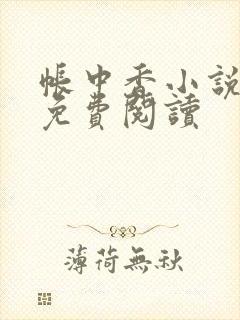 帳中香小說
免費閱讀
薄荷無秋